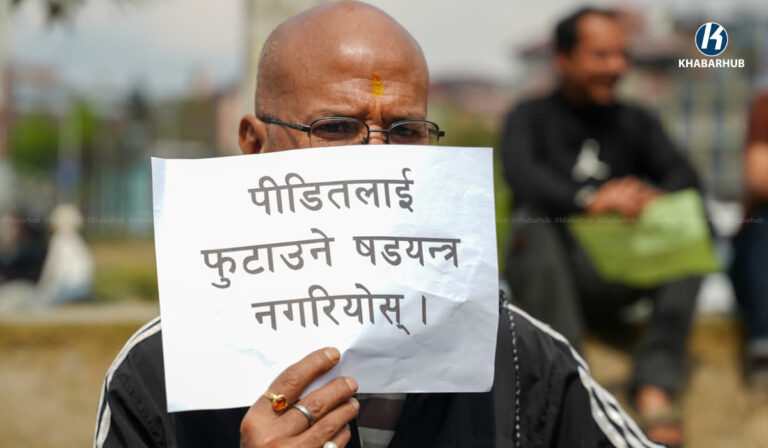 KHABARHUB
पीडितलाई
फुटाउने षडयन्त्र
नगरियोस् ।